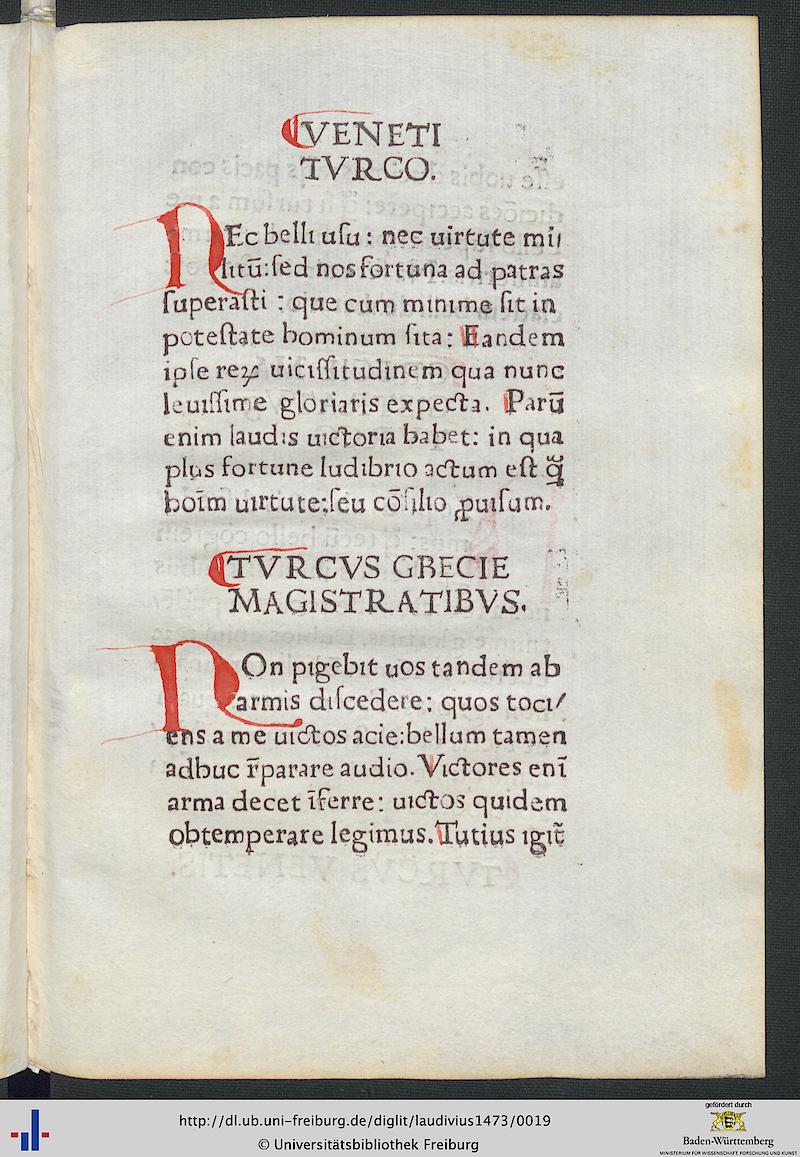 VENETI
TVRCO.
NEc belli usu : nec uirtute mi/
litū: sed nos fortuna ad patras
superasti : que cum minime sit in
potestate hominum sita: Eandem
ipse reꝝ uicissitudinem qua nunc
leuissime gloriaris expecta. Parū
enim laudis uictoria habet: in qua
plus fortune ludibrio actum est q̃
hoīm uirtute: seu cōsilio ꝓuisum.
TVRCVS GRECIE
MAGISTRATIBVS.
NOn pigebit uos tandem ab
armis discedere; quos toci/
ens a me uictos acie: bellum tamen
adhuc r̄parare audio. Victores enī
arma decet īferre: uictos quidem
obtemperare legimus. Tutius igit̄
http://dl.ub.uni-freiburg.de/diglit/laudivius1473/0019
© Universitätsbibliothek Freiburg
gefördert durch
Baden-Württemberg
MINISTERIUM FÜR WISSENSCHAFT, FORSCHUNG UND KUNST